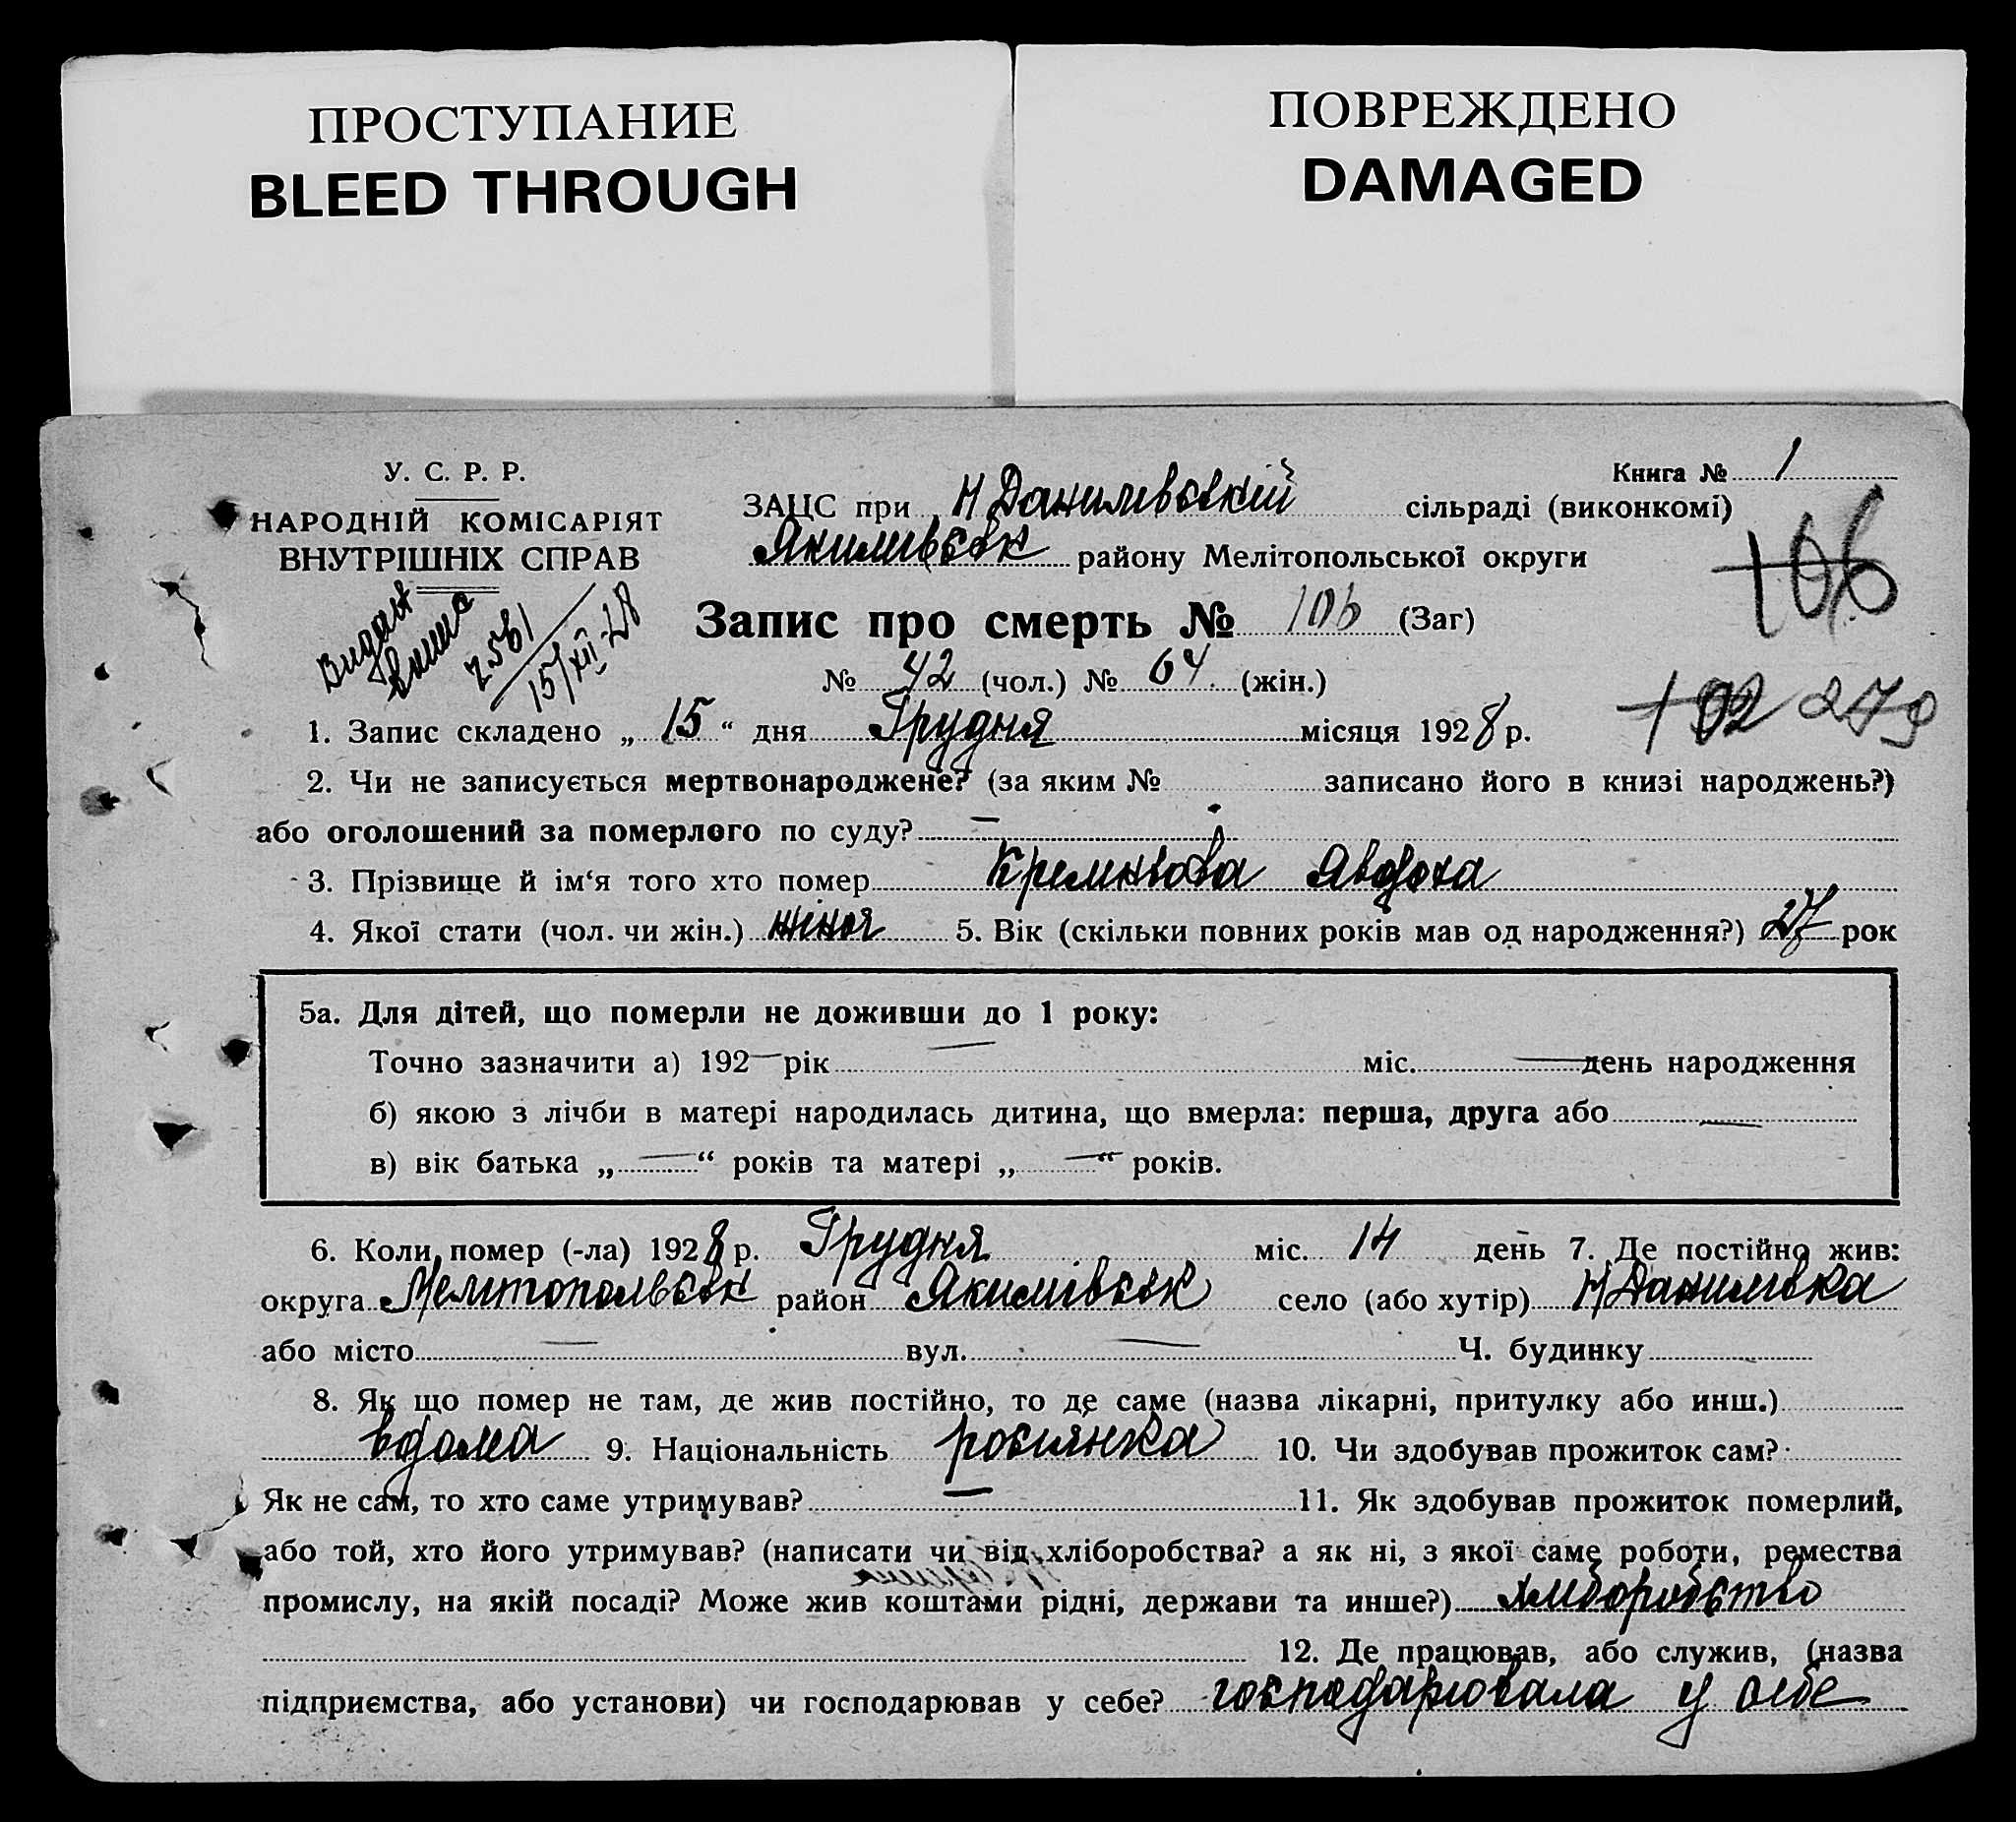 ПРОСТУПАНИЕ
BLEED THROUGH
ПОВРЕЖДЕНО
DAMAGED
У. С. Р. Р.
НАРОДНІЙ КОМІСАРІЯТ
ВНУТРІШНІХ СПРАВ
Книга № 1
ЗАЦС при Н Данилевскій сільраді (виконкомі)
Якимівськ району Мелітопольської округи
106
Видах
2561
15/XII-28
Запис про смерть № 106 (Заг)
№ 42 (чол.) № 64 (жін.)
102 279
1. Запис складено „ 15 “ дня Грудня місяця 1928 р.
2. Чи не записується мертвонароджене? (за яким № записано його в книзі народжень?)
або оголошений за померлого по суду? —
3. Прізвище й ім‘я того хто помер Кремньова Явдоха
4. Якої стати (чол. чи жін.) жіноч 5. Вік (скільки повних років мав од народження?) 27 рок
5а. Для дітей, що померли не доживши до 1 року:
Точно зазначити а) 192— рік — міс. — день народження
б) якою з лічби в матері народилась дитина, що вмерла: перша, друга або —
в) вік батька „ — “ років та матері „ — “ років.
6. Коли помер (-ла) 1928 р. Грудня міс. 14 день 7. Де постійно жив:
округа Мелітопольськ район Якимівськ село (або хутір) Н Данилівка
або місто — вул. — Ч. будинку
8. Як що помер не там, де жив постійно, то де саме (назва лікарні, притулку або инш.)
вдома 9. Національність росіянка 10. Чи здобував прожиток сам?
Як не сам, то хто саме утримував? — 11. Як здобував прожиток померлий,
або той, хто його утримував? (написати чи від хліборобства? а як ні, з якої саме роботи, ремества
промислу, на якій посаді? Може жив коштами рідні, держави та инше?) хліборобство
12. Де працював, або служив, (назва
підприємства, або установи) чи господарював у себе? господарювала у себе